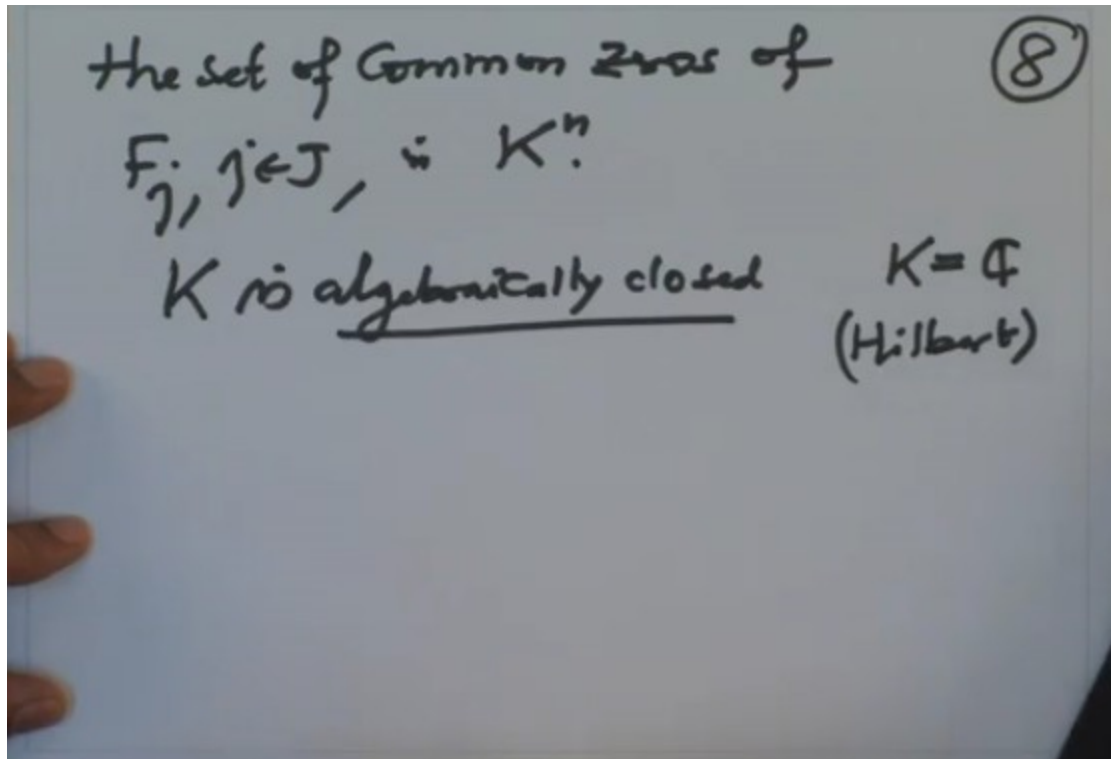 the set of Common zeros of
⑧
Fj, j∈J, in Kⁿ.
K is algebraically closed
K = ℂ
(Hilbert)